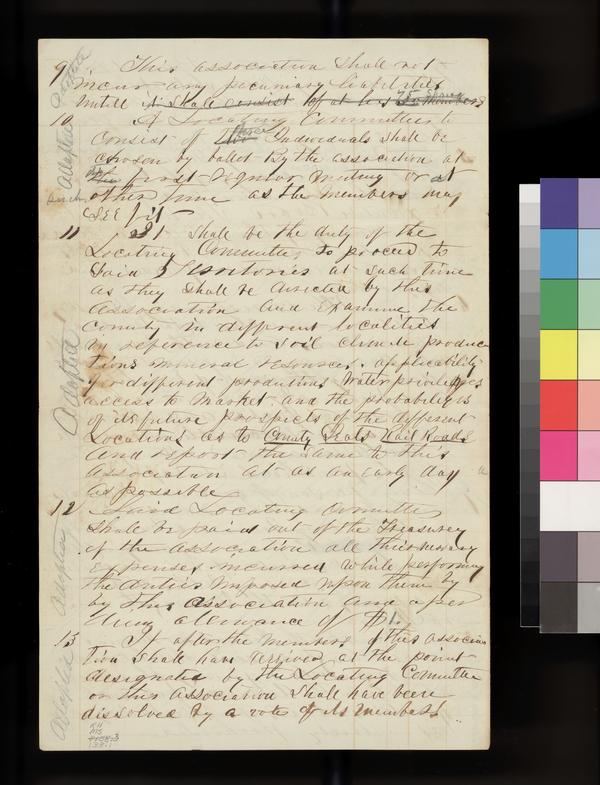 9 This association shall not
incur any pecuniary liabilities
untill it shall consist of at least 25 members
10 A Locating Committee to
consist of three Individuals shall be
chosen by ballot By the association at
first regular meeting or at
such other time as the members may
SEE fit
11 It shall be the duty of the
Locating Committee, to proceed to
Said Teritories at such time
as they shall be directed by this
Association and Examine the
County in different localities
in reference to soil climate produc
tions mineral resources. applicability
for different productions Water priviledges
access to market and the probabilities
of its future prospects of the different
Locations as to County Seats Rail Roads
And report the same to this
Association at as an early day
as possible
12 Said Locating Committee
shall be paid out of the Treasurey
of the association all their necessary
Expenses incurred while performing
the duties imposed upon them by
by this association and a per
diem alowance of $1.
13 If after the members of this associa
tion shall have arrived at the point
designated by the Locating Committee
or this Association Shall have been
dissolved by a vote of its members
Adopted
Adopted
Adopted
Adopted
Adopted